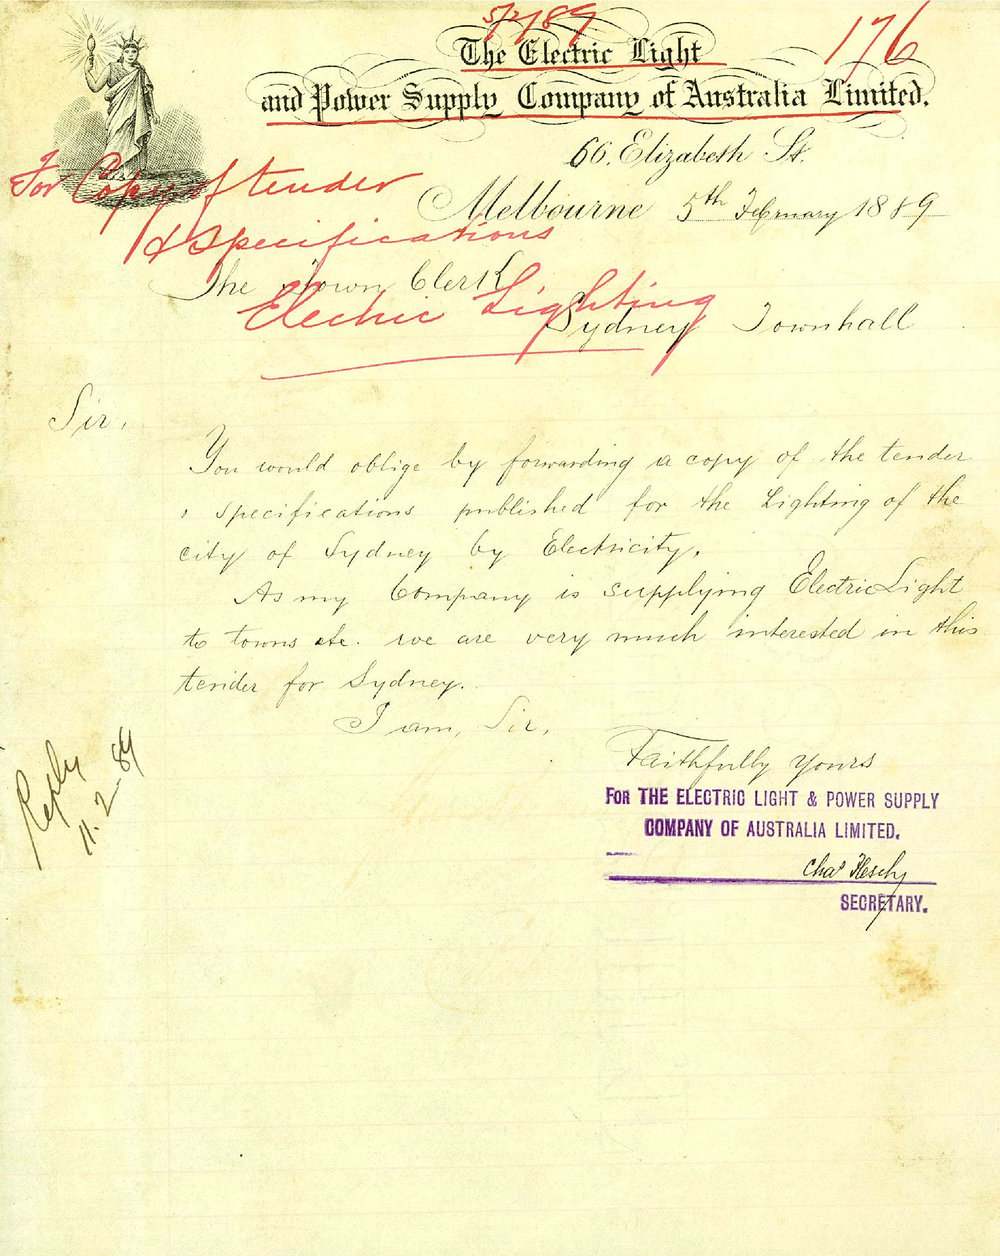 5/2/89
176
The Electric Light
and Power Supply Company of Australia Limited.
66, Elizabeth St.
Melbourne 5th February 1889
For Copy of tender
& Specifications
Electric Lighting
The Town Clerk
Sydney Townhall
Sir,
You would oblige by forwarding a copy of the tender
specifications published for the Lighting of the
city of Sydney by Electricity.
As my Company is supplying Electric Light
to towns etc. we are very much interested in this
tender for Sydney.
I am, Sir,
Faithfully yours
FOR THE ELECTRIC LIGHT & POWER SUPPLY
COMPANY OF AUSTRALIA LIMITED.
Chas
SECRETARY.
Reply
11.2-89